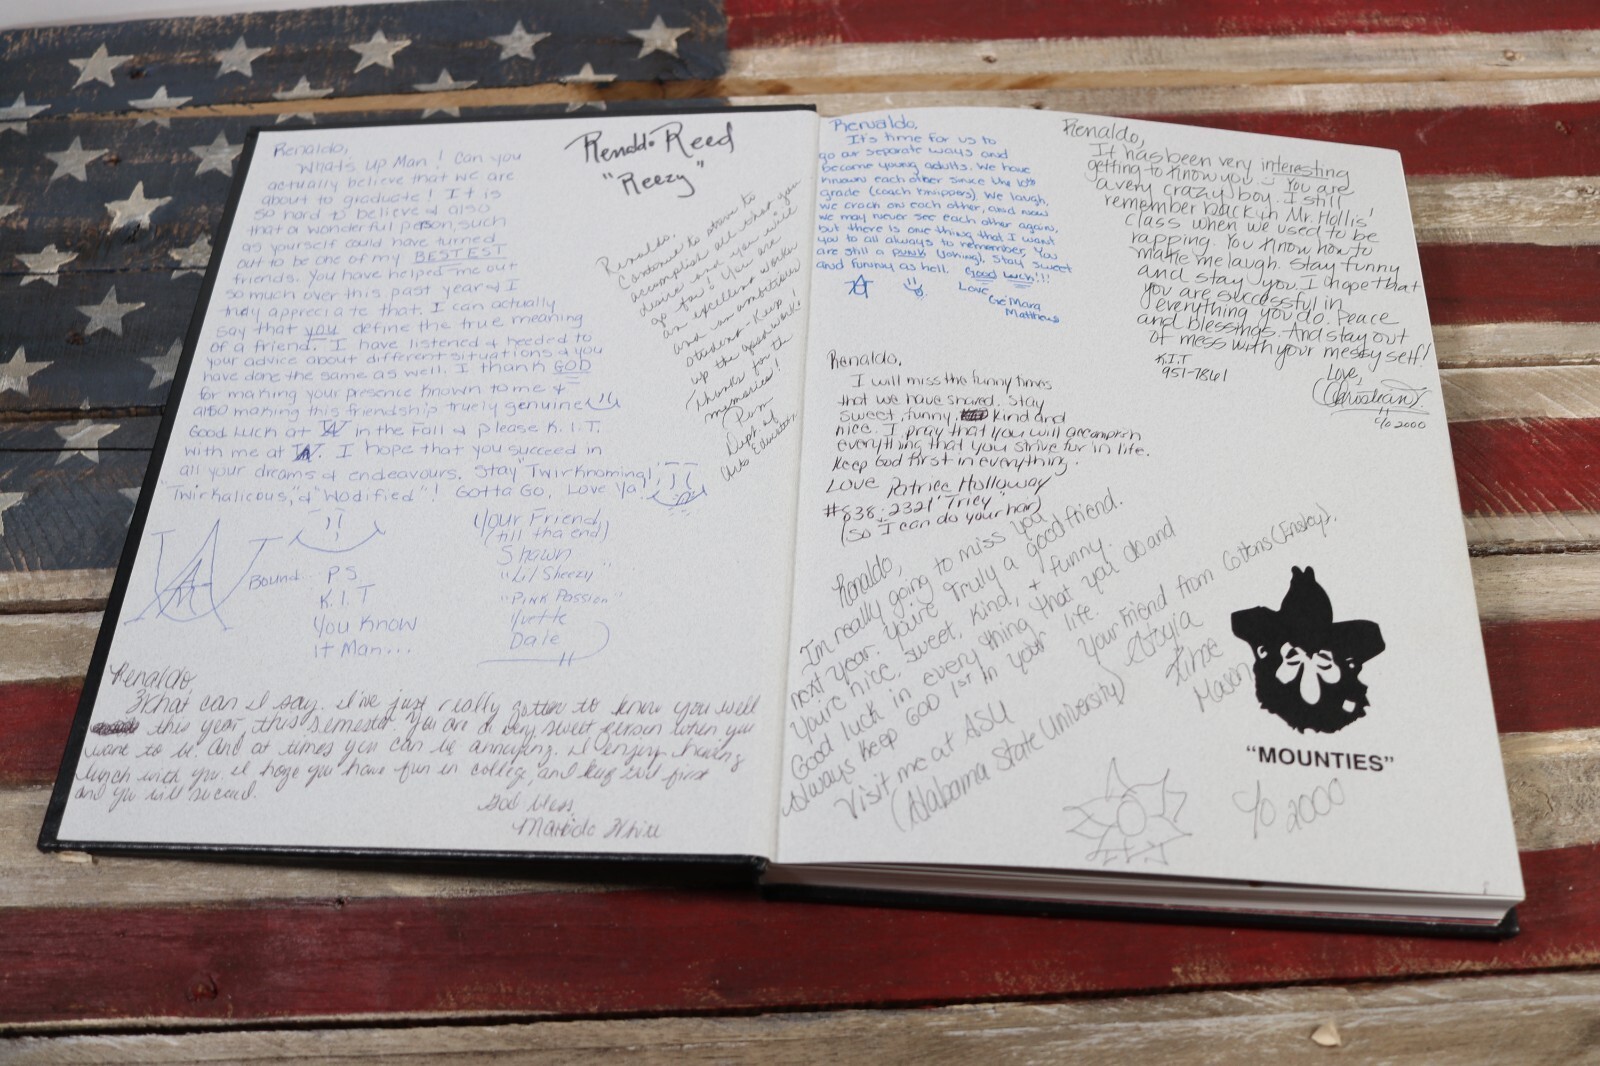 Renaldo,
What's up Man! Can you
actually believe that we are
about to graduate! It is
so hard to believe & also
that a wonderful person, such
as yourself could have turned
out to be one of my BESTEST
friends. You have helped me out
so much over this past year & I
truly appreciate that. I can actually
say that you define the true meaning
of a friend. I have listened & heeded to
your advice about different situations & you
have done the same as well. I thank GOD
for making your presence known to me &
also making this friendship truely genuine
Good Luck at in the Fall & please K.I.T.
with me at . I hope that you succeed in
all your dreams & endeavours. Stay "Twirknoming",
"Twirkalicous," & "Wodified"! Gotta Go, Love Ya!
Your Friend,
(till tha end)
Shawn
"Lil Sheezy"
"Pink Passion"
Yvette
Dale
Bound
P.S.
K.I.T
You Know
It Man...
Renaldo Reed
"Reezy"
Renaldo,
Continue to strive to
accomplish all that you
desire and you will
go far! You are
an excellent worker
and an ambitious
student - Keep
up the good work!
Thanks for the
memories!
Pam
Dept. of
Renaldo
What can I say. I've just really gotten to know you well
this year, this semester. You are a very sweet person when you
want to be. And at times you can be annoying. I enjoy having
lunch with you. I hope you have fun in college, and keep God first
and you will succeed.
God bless,
Renaldo,
It's time for us to
go our separate ways and
become young adults. We have
known each other since the 10th
grade (coach Knippers). We laugh,
we crack on each other, and now
we may never see each other again,
but there is one thing that I want
you to all always to remember, You
are still a punk (joking). Stay sweet
and funny as hell. Good Luck!!!
Love,
Ge'Mara
Matthews
Renaldo,
It has been very interesting
getting to know you. You are
a very crazy boy. I still
remember back in Mr. Hollis'
class when we used to be
rapping. You know how to
make me laugh. Stay funny
and stay you. I hope that
you are successful in
everything you do. Peace
and blessings. And stay out
of mess with your messy self!
K.I.T
951-7861
Love,
c/o 2000
Renaldo,
I will miss the funny times
that we have shared. Stay
sweet, funny, kind and
nice. I pray that you will accomplish
everything that you strive for in life.
Keep God first in everything.
Love Patrice Holloway
#838-2321 "Tricy"
(So I can do your hair)
Renaldo,
I'm really going to miss you
next year. You're truly a good friend.
You're nice, sweet, kind, & funny.
Good luck in everything that you do and
always keep GOD 1st in your life.
Visit me at ASU
(Alabama State University)
Your friend from Cottons (Ensley),
Mason
"MOUNTIES"
c/o 2000